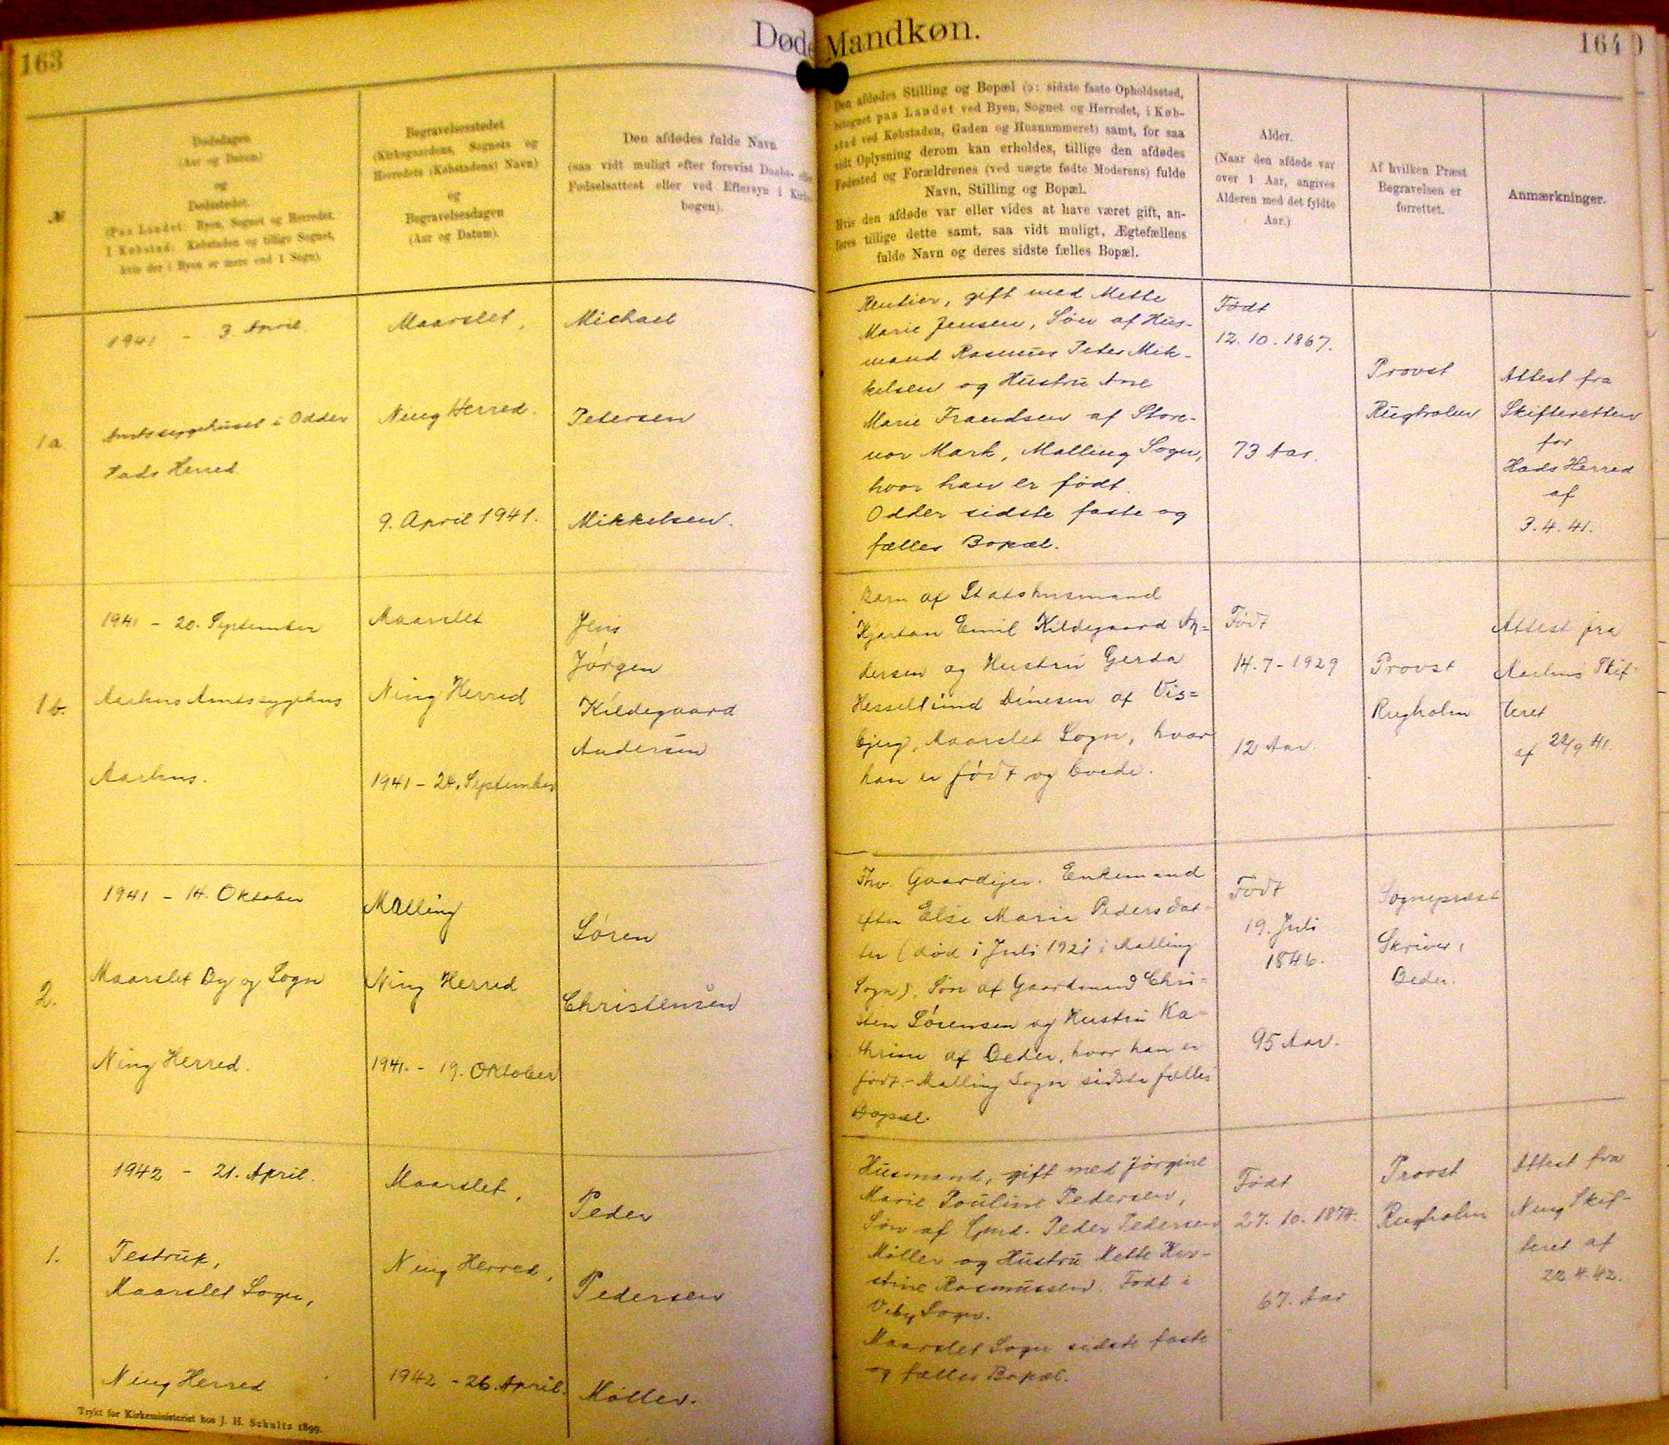 163
Døde Mandkøn.
164
№
Dødsdagen
(Aar og Datum)
og
Dødsstedet.
(Paa Landet: Byen, Sognet og Herredet.
I Købstad: Købstaden og tillige Sognet,
hvis der i Byen er mere end 1 Sogn).
Begravelsesstedet
(Kirkegaardens, Sognets og
Herredets (Købstadens) Navn)
og
Begravelsesdagen
(Aar og Datum).
Den afdødes fulde Navn
(saa vidt muligt efter forevist Daabs- eller
Fødselsattest eller ved Eftersyn i Kirke-
bogen).
Den afdødes Stilling og Bopæl (ɔ: sidste faste Opholdssted,
betegnet paa Landet ved Byen, Sognet og Herredet, i Køb-
stad ved Købstaden, Gaden og Husnummeret) samt, for saa
vidt Oplysning derom kan erholdes, tillige den afdødes
Fødested og Forældrenes (ved uægte fødte Moderens) fulde
Navn, Stilling og Bopæl.
Hvis den afdøde var eller vides at have været gift, an-
føres tillige dette samt, saa vidt muligt, Ægtefællens
fulde Navn og deres sidste fælles Bopæl.
Alder.
(Naar den afdøde var
over 1 Aar, angives
Alderen med det fyldte
Aar.)
Af hvilken Præst
Begravelsen er
forrettet.
Anmærkninger.
1a
1941 - 3 April
Amtssygehuset i Odder
Hads Herred
Maarslet,
Ning Herred.
9. April 1941.
Michael
Petersen
Mikkelsen.
Rentier, gift med Mette
Marie Jensen, Søn af Hus-
mand Rasmus Peter Mik-
kelsen og Hustru Ane
Marie Frandsen af Store-
nor Mark, Malling Sogn,
hvor han er født.
Odder sidste faste og
fælles Bopæl.
Født
12.10.1867.
73 Aar.
Provst
Rugholm
Attest fra
Skifteretten
for
Hads Herred
af
3.4.41.
1b.
1941 - 20. September
Aarhus Amtssygehus
Aarhus.
Maarslet
Ning Herred
1941 - 24. September
Jens
Jørgen
Kildegaard
Andersen
Barn af Statshusmand
Kjartan Emil Kildegaard An=
dersen og Hustru Gerda
Hessellund Dinesen af Vis=
bjerg, Maarslet Sogn, hvor
han er født og boede.
Født
14.7-1929
12 Aar.
Provst
Rugholm
Attest fra
Aarhus Skif-
teret
af 22/9 41.
2.
1941 - 14. Oktober
Maarslet By og Sogn
Ning Herred.
Malling
Ning Herred
1941. - 19. Oktober
Søren
Christensen
Fhv. Gaardejer. Enkemand
efter Else Marie Pedersdat-
ter (død i Juli 1921 i Malling
Sogn). Søn af Gaardmand Chri-
sten Sørensen og Hustru Ka-
thrine af Beder, hvor han er
født - Malling Sogn sidste fælles
Bopæl.
Født
19. Juli
1846.
95 Aar.
Sognepræst
Skriver,
Beder.
1.
1942 - 21. April.
Testrup,
Maarslet Sogn,
Ning Herred
Maarslet,
Ning Herred,
1942 - 26. April.
Peder
Pedersen
Møller.
Husmand, gift med Jørgine
Marie Pouline Pedersen,
Søn af Gmd. Peder Pedersen
Møller og Hustru Mette Kir-
stine Rasmussen. Født i
Viby Sogn.
Maarslet Sogn sidste faste
og fælles Bopæl.
Født
27.10.1874.
67. Aar
Provst
Rugholm
Attest fra
Ning Skif-
teret af
22.4.42.
Trykt for Kirkeministeriet hos J. H. Schultz 1899.